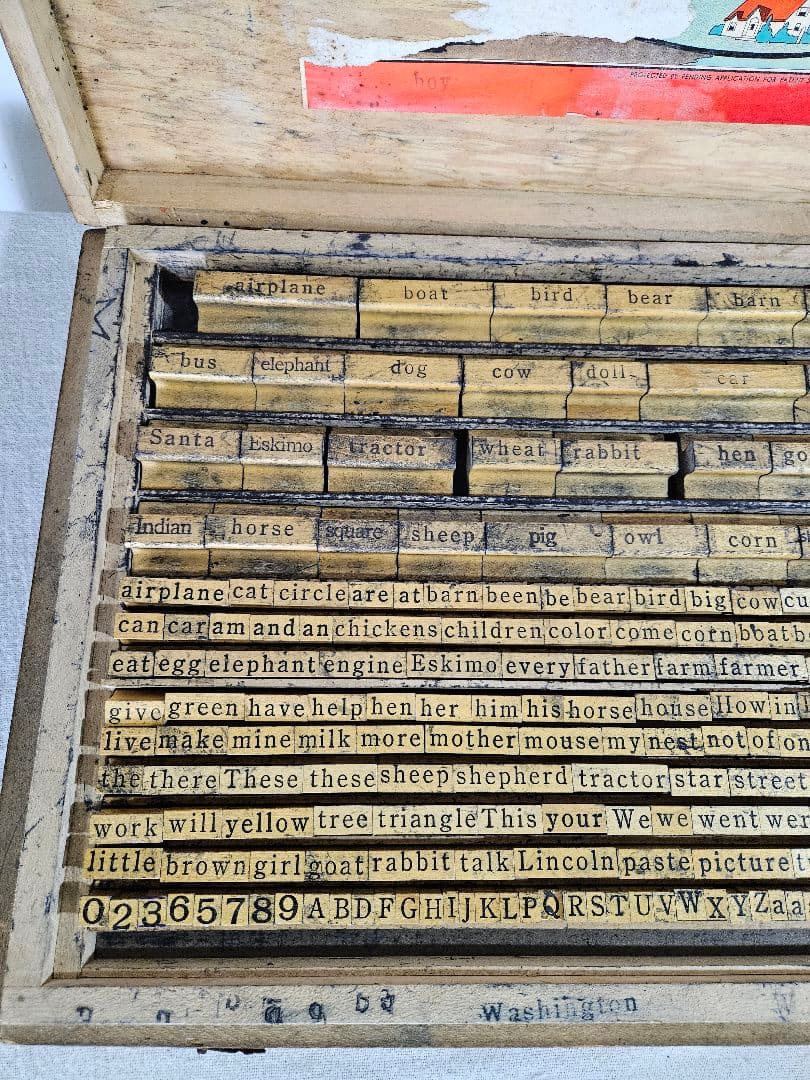 boy
PROTECTED BY PENDING APPLICATION FOR PATENT
airplane boat bird bear barn
bus elephant dog cow doll car
Santa Eskimo tractor wheat rabbit hen go
Indian horse square sheep pig owl corn
airplane cat circle are at barn been be bear bird big cow cu
can car am and an chickens children color come corn boat b
eat egg elephant engine Eskimo every father farm farmer
give green have help hen her him his horse house How in
live make mine milk more mother mouse my nest not of on
the there These these sheep shepherd tractor star street
work will yellow tree triangle This your We we went wer
little brown girl goat rabbit talk Lincoln paste picture t
0 2 3 6 5 7 8 9 A B D F G H I J K L P Q R S T U V W X Y Z a a
Washington W